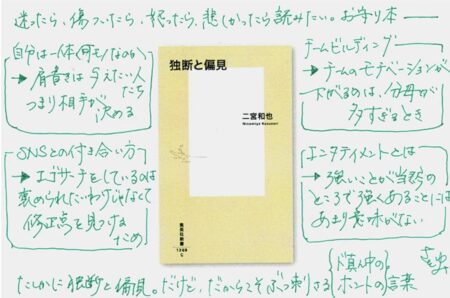 迷ったら、傷ついたら、怒ったら、悲しかったら読みたい。お守り本
自分は一体何モノなのか
→肩書きは与えたい人たち
つまり相手が
決める
チームビルディング
→チームのモチベーションが
下がるのは、分母が
多すぎるとき
独断と偏見
二宮和也
Ninomiya Kazunari
集英社新書
1268
SNSとの付き合い方
→エゴサーチをしているのは
褒められたいわけじゃなくて
修正点を見つける
ため
エンタテイメントとは
→強いことが当然の
ところで強くあることには
あまり意味がない
たしかに独断と偏見。だけど、だからこそぶっ刺さる
ド真ん中の
ホントの言葉